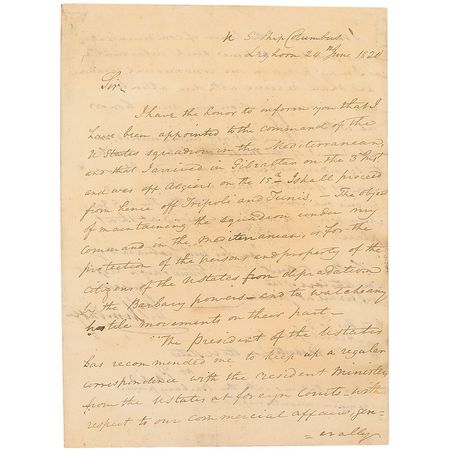 U S Ship Columbus
Leghorn 24th June 1820
Sir,
I have the honor to inform you that I
have been appointed to the command of the
U States squadron in the Mediterranean,
and that I arrived in Gibraltar on the 3d Inst
and was off Algiers, on the 15th I shall proceed
from hence off Tripoli and Tunis. — The object
of maintaining the squadron under my
command in the Mediterranean, is for the
protection of the persons and property of the
citizens of the UStates from depradation
by the Barbary powers — and to
hostile movements on their part —
The President of the UStates
has recommended me to keep up a regular
correspondence with the resident Ministers
from the UStates at foreign Courts — with
respect to our commercial affairs gen=
=erally